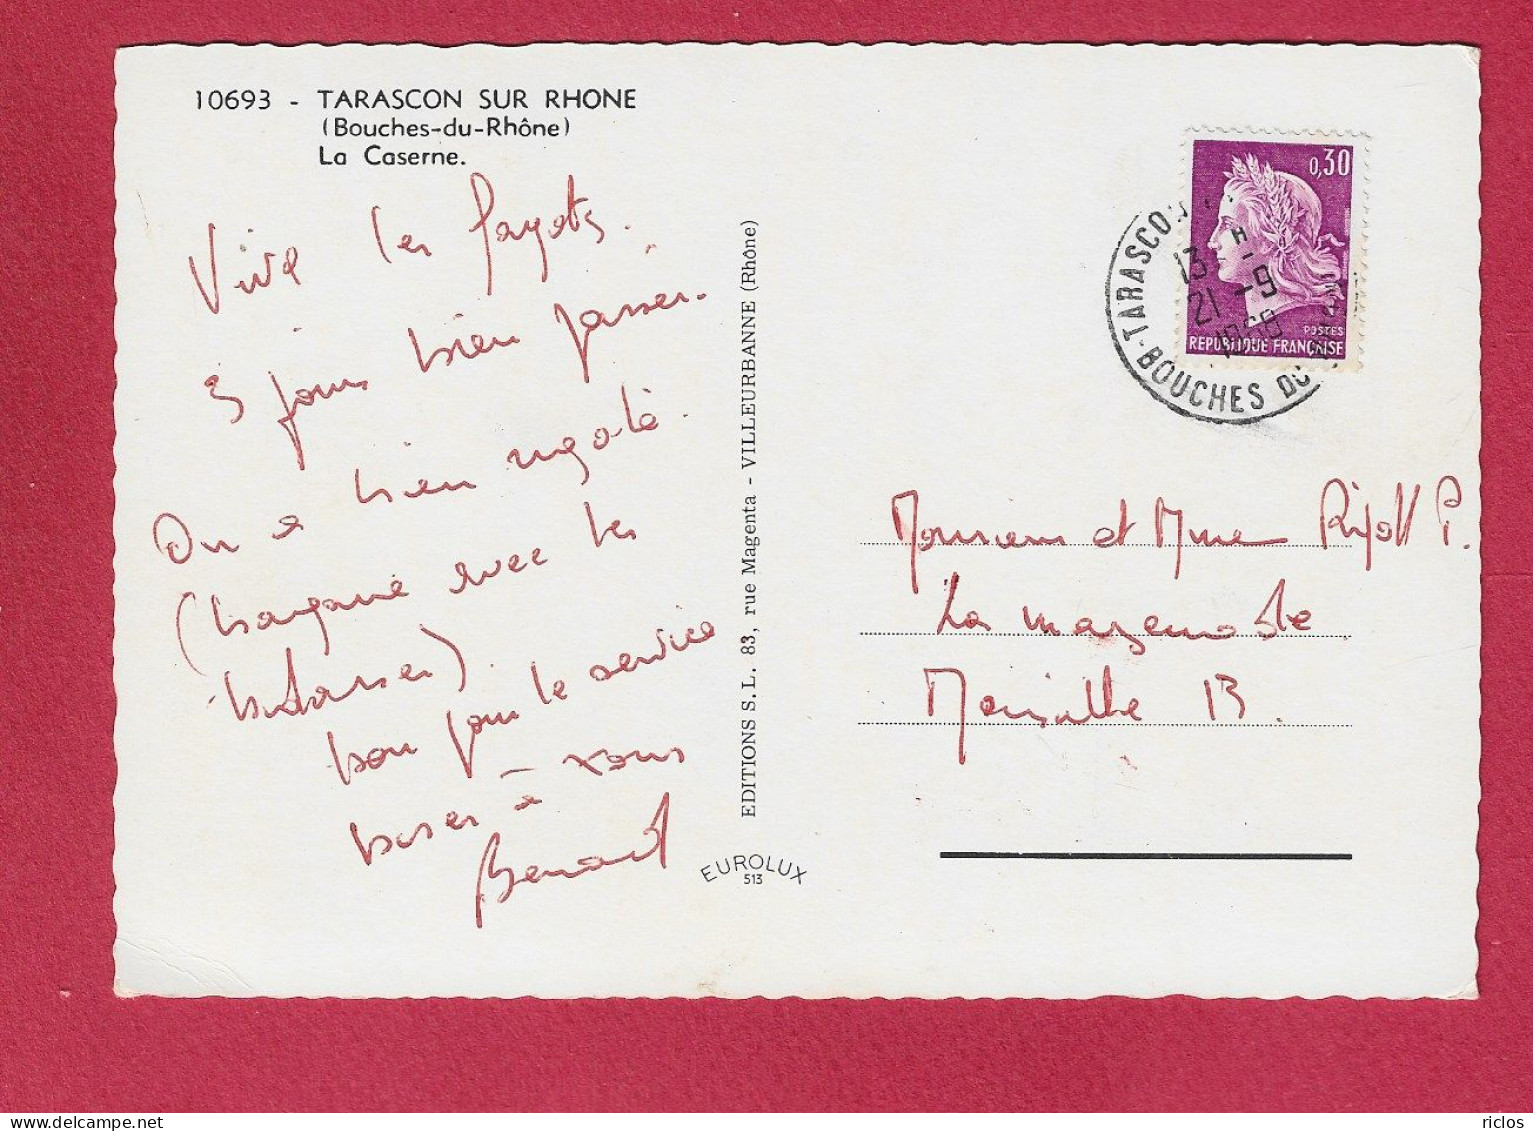 10693 - TARASCON SUR RHONE
(Bouches-du-Rhône)
La Caserne.
Vive les fayots.
3 jours bien passer.
On a bien rigolé.
avec les
bon pour le service
bises à vous
Benoit
EDITIONS S.L. 83, rue Magenta - VILLEURBANNE (Rhône)
EUROLUX
513
0,30
POSTES
REPUBLIQUE FRANÇAISE
TARASCON
13 H
21 -9
BOUCHES DU
Monsieur et Mme P.
La
Marseille 13.
riclos